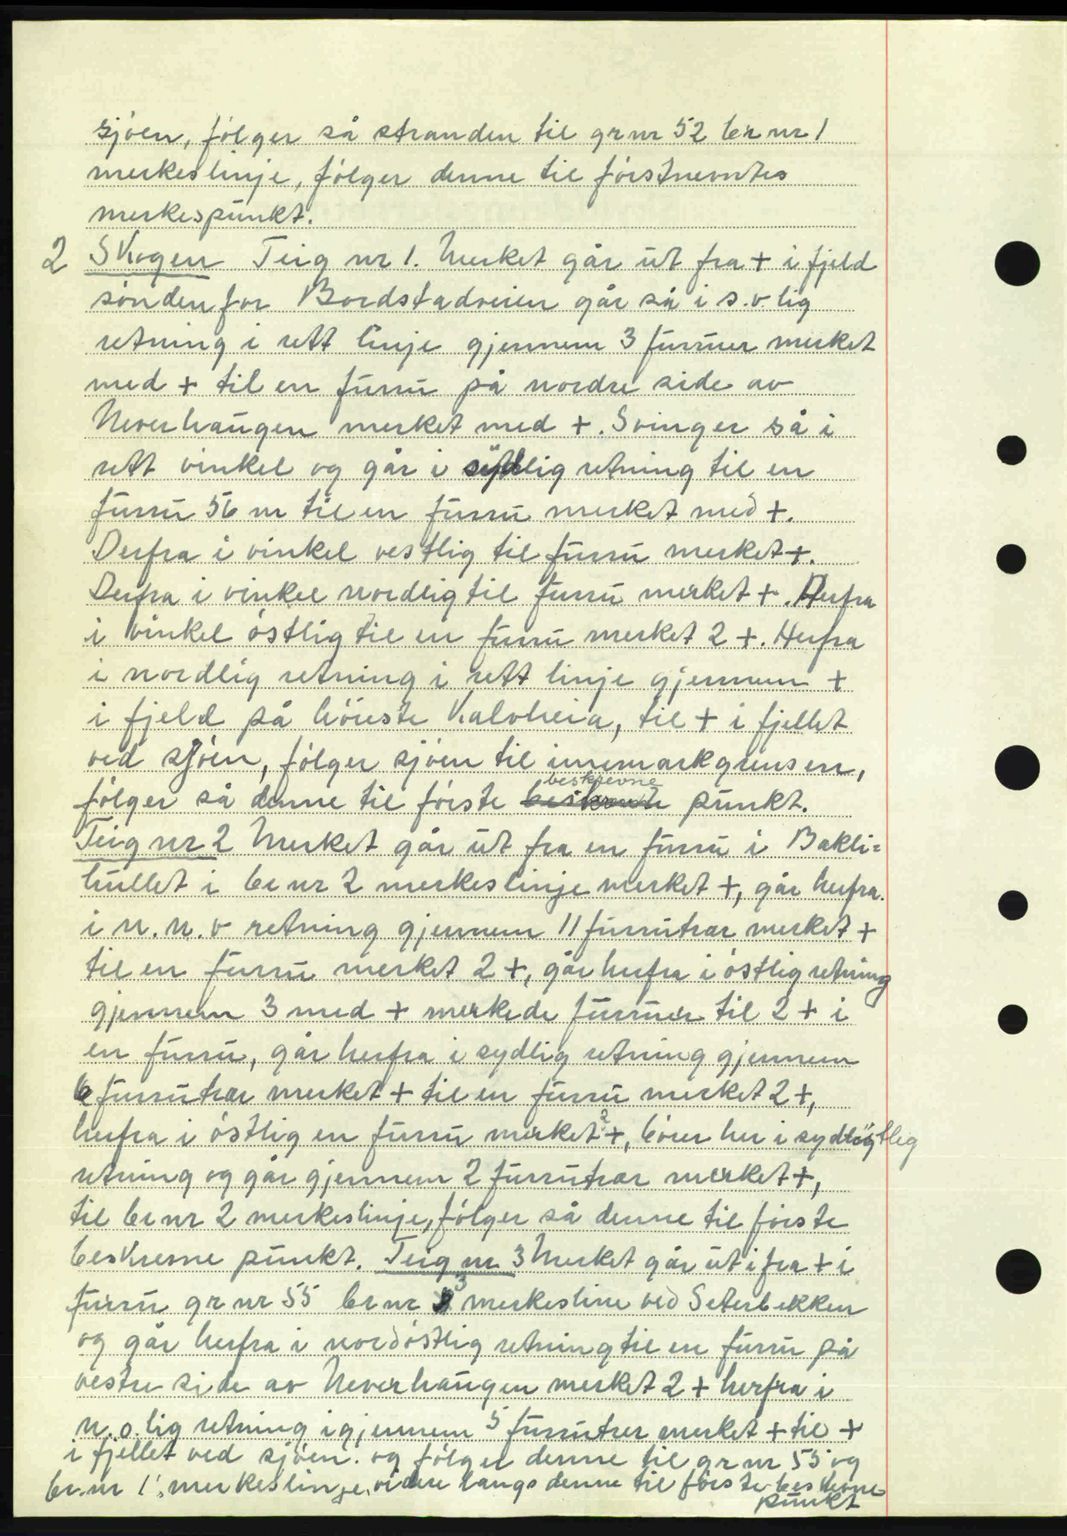 sjøen, følger så stranden til gr nr 52 br nr 1
merkeslinje, følger denne til førstnevntes
merkespunkt.
2 Skogen Teig nr 1. Merket går ut fra + i fjeld
sønden for Bordstadveien går så i s.v. lig
retning i rett linje gjennem 3 furruer merket
med + til en furru på nordre side av
Neverhaugen merket med +. Svinger så i
rett vinkel og går i sydlig retning til en
furru 56 m til en furru merket med +.
Derfra i vinkel vestlig til furru merket +.
Derfra i vinkel nordlig til furru merket +. Herfra
i vinkel østlig til en furru merket 2 +. Herfra
i nordlig retning i rett linje gjennem +
i fjeld på høieste Kalvheia, til + i fjellet
ved sjøen, følger sjøen til innmarkgrensen,
følger så denne til første beskrevne punkt.
Teig nr 2 Merket går ut fra en furru i Bakli=
hullet i br nr 2 merkeslinje merket +, går herfra
i n. n. v retning gjennem 11 furrutrær merket +
til en furru merket 2 +, går herfra i østlig retning
gjennem 3 med + merkede furruer til 2 + i
en furru, går herfra i sydlig retning gjennem
6 furrutrær merket + til en furru merket 2 +,
herfra i østlig en furru merket 2 +, bøier her i sydøstlig
retning og går gjennem 2 furrutrær merket +,
til br nr 2 merkeslinje, følger så denne til første
beskrevne punkt. Teig nr 3 Merket går ut ifra + i
furru gr nr 55 br nr 3 merkesline ved Seterbekken
og går herfra i nordøstlig retning til en furru på
vestre side av Neverhaugen merket 2 + herfra i
n.o. lig retning igjennem 5 furrutrer merket + til +
i fjellet ved sjøen. og følger denne til gr nr 55 og
br. nr 1 merkeslinje, videre langs denne til første beskrevne
punkt